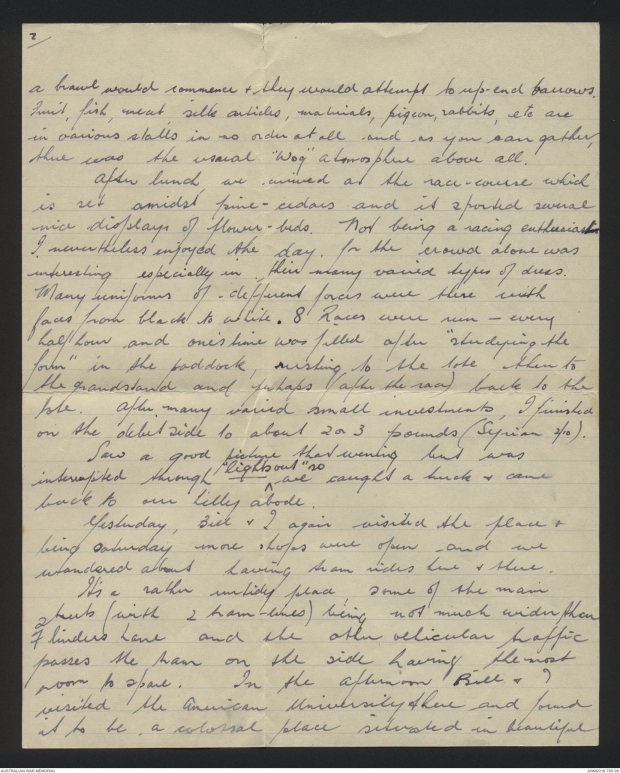 2/
a brawl would commence & they would attempt to up-end barrows.
Fruit, fish, meat, silk articles, materials, pigeon, rabbits, etc are
in various stalls in no order at all and as you can gather,
there was the usual "Wog" atmosphere above all.
After lunch, we arrived at the race-course which
is set amidst pine-cedars and it sported several
nice displays of flower-beds. Not being a racing enthusiast
I nevertheless enjoyed the day, for the crowd alone was
interesting especially in their many varied types of dress.
Many uniforms of different forces were there with
faces from black to white. 8 Races were run - every
half hour and one's time was filled after "studying the
form" in the paddock, rushing to the tote, then to
the grandstand and perhaps (after the race) back to the
tote. After many varied small investments, I finished
on the debit side to about 2 or 3 pounds (Syrian).
Saw a good picture that evening but was
interrupted through "lights out" so we caught a truck & came
back to our hilly abode.
Yesterday, Bill & I again visited the place &
being Saturday more shops were open and we
wandered about having tram rides here & there.
It's a rather untidy place, some of the main
streets (with 2 tram-lines) being not much wider than
Flinders Lane and the other vehicular traffic
passes the tram on the side having the most
room to spare. In the afternoon Bill & I
visited the American University there and found
it to be a colossal place situated in beautiful
AUSTRALIAN WAR MEMORIAL